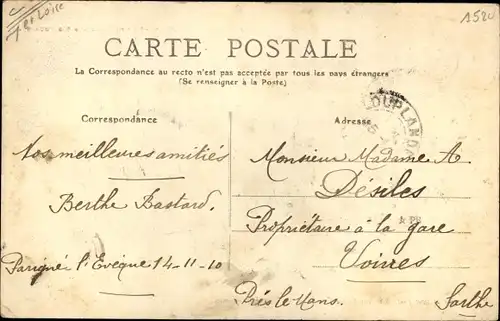 1520
CARTE POSTALE
La Correspondance au recto n'est pas acceptée par tous les pays étrangers
(Se renseigner à la Poste)
Correspondance
Adresse
LOUPLANDE
Nos meilleures amitiés
Berthe Bastard.
Parigné l'Evêque 14-11-10
Monsieur Madame A.
Désiles
Propriétaire à la gare
Voivres
Près le Mans.
Sarthe